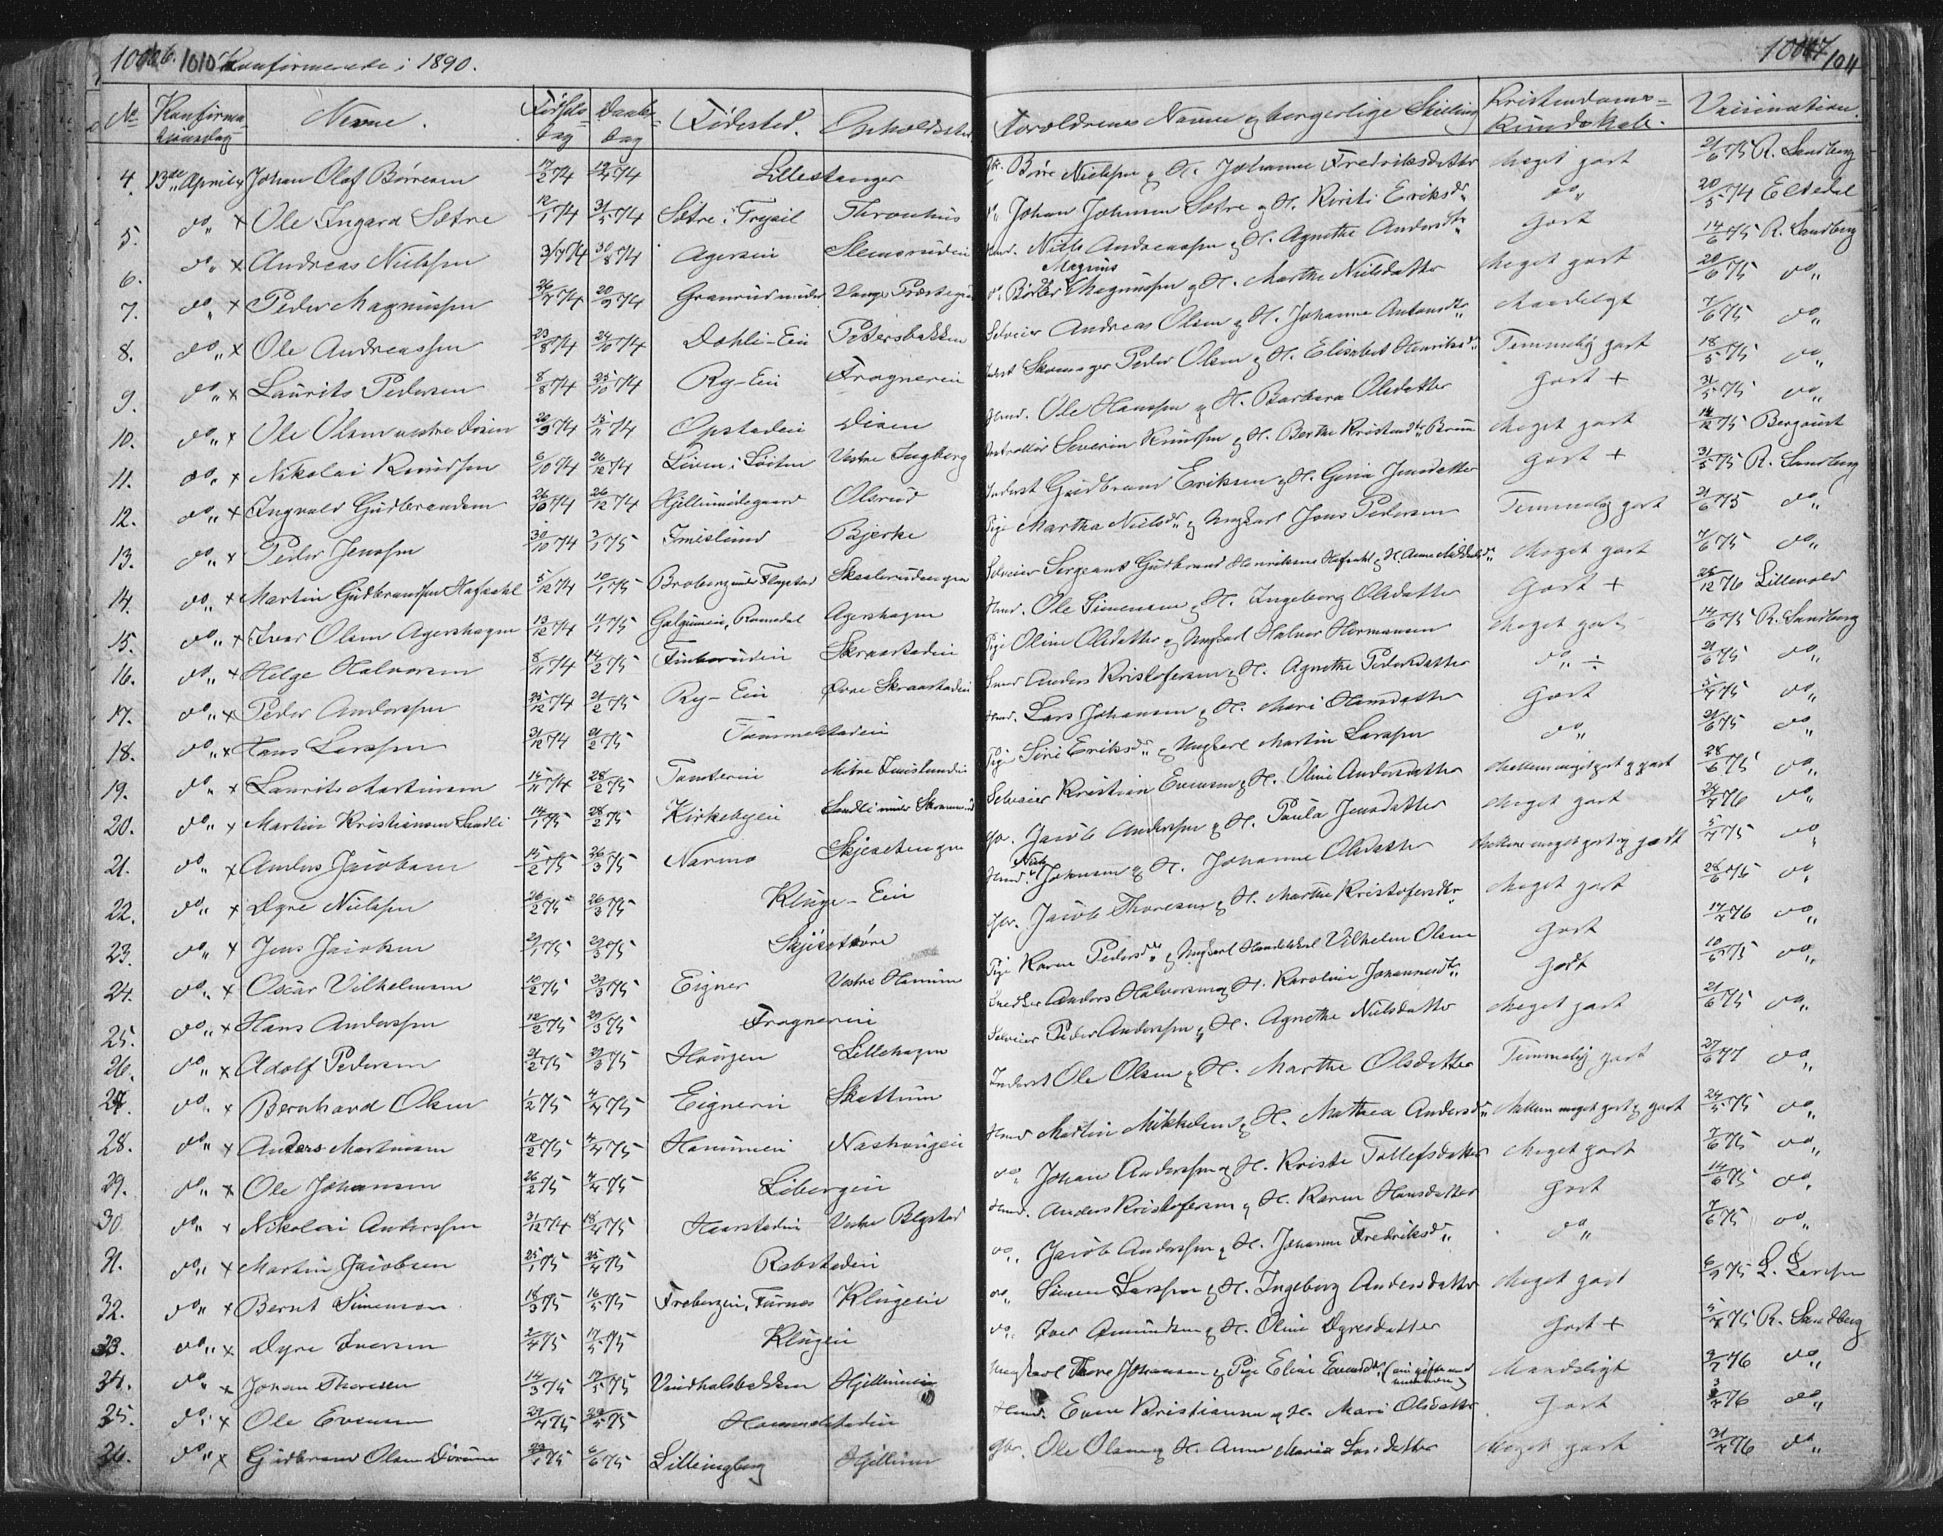 1010 Konfirmerede i 1890.
1011
No Konfirmationsdag Navne. Fødselsdag Daabsdag Fødested. Opholdssted Forældrenes Navne og borgerlige Stilling Kristendomskundskab. Vaccination.
4. 13de April Johan Olaf Børresen 74 74 Lillestanger Børre Nielsen og H. Johanne Fredriksdatter Meget godt 21/6 75 R. Sandberg
5. do x Ole Ingard Sætre 74 31/5 74 Sætre i Trysil Johan Johnsen Sætre og H. Kirsti Eriksdr do 20/5 74 Eltdal
6. do x Andreas Nielsen 3/7 74 30/8 74 Agersein Slemsrudein Hmd. Niels Andreassen og H. Agnethe Andersdtr godt 14/6 75 R. Sandberg
7. do x Peder Magnussen 26/7 74 20/9 74 Granrud under Vangs Præstegd Magnus Magnussen og H. Marthe Nielsdatter Meget godt 20/6 75 do
8. do x Ole Andreassen 23/8 74 24/10 74 Dahli-Ein Petersbakken Selveier Andreas Olsen og H. Johanne Antonsdtr Maadeligt 7/6 75 do
9. do x Laurits Pedersen 8/8 74 25/10 74 Ry-Ein Frognerein Inderst Skomager Peder Olsen og H. Elisabet Henriksdr Temmelig godt 18/5 75 do
10. do x Ole Olsen vestre Disen 20/9 74 15/11 74 Opstadein Disen Hmd. Ole Hanssen og H. Barbara Olsdatter godt + 31/5 75 do
11. do x Nikolai Knudsen 6/10 74 26/12 74 Liven i Løiten Vestre Ingberg Severin Knudsen og H. Berthe Kristensdtr Bruun Meget godt 14/12 75 Bergqvist
12. do x Ingvald Gudbrandsen 26/10 74 26/12 74 Hjellumsdegaard Olsrud Inderst Gudbrand Eriksen og H. Gina Jensdatter godt + 31/5 75 R. Sandberg
13. do x Peder Jenssen 30/10 74 3/1 75 Imislund Bjerke Pige Martha Nielsdr og Ungkarl Jens Pedersen Temmelig godt 21/6 75 do
14. do x Martin Gudbrandsen Hafsahl 5/12 74 10/1 75 Broberg under Flagstad Skaalerudengen Selveier Sergeant Gudbrand Henriksen Hafsahl og H. Anne Mikkelsdr Meget godt 7/6 75 do
15. do x Iver Olsen Agershagen 13/12 74 75 Galgumein, Romedal Agershagen Hmd. Ole Simensen og H. Ingeborg Olsdatter Godt + 28/12 76 Lillevold
16. do x Helge Halvorsen 8/11 74 14/2 75 Finborudein Skraastadein Pige Oline Olsdatter og Ungkarl Halvor Hermansen Meget godt 14/6 75 R. Sandberg
17. do x Peder Anderssen 25/12 74 21/2 75 Ry-Ein Øvre Skraastadein Smed Anders Kristofersen og H. Agnethe Pedersdatter do ÷ 21/6 75 do
18. do x Hans Larssen 31/12 74 21/2 75 Tommelstadein Hmd. Lars Johansen og H. Mari Hansdatter Godt 5/4 75 do
19. do x Laurits Martinsen 15/11 74 28/2 75 Tomterein Mitre Imislundein Pige Siri Eriksdr og Ungkarl Martin Larssen do 21/6 75 do
20. do x Martin Kristiansen Sandli 14/1 75 28/2 75 Kirkebyein Sandli under Skramsrud Selveier Kristian Evensen og H. Oline Andersdatter Mellem meget godt og godt 28/6 75 do
21. do x Anders Jacobsen 15/2 75 26/3 75 Narmo Skjesetengen Gbr. Jacob Anderssen og H. Paula Jensdatter Meget godt 24/4 76 do
22. do x Dyre Nielssen 20/2 75 26/3 75 Kluge-Ein Hmd. Niels Johansen og H. Johanne Olsdatter Mellem meget godt og godt 5/4 75 do
23. do x Jens Jacobsen 75 29/3 75 Skjeset øvre Gbr. Jacob Thoresen og H. Marthe Kristofersdtr Meget godt 28/6 75 do
24. do x Oscar Vilhelmsen 10/2 75 29/3 75 Eigner Vestre Hamum Pige Karen Pedersdtr og Ungkarl Handelskarl Vilhelm Olsen Godt 17/4 76 do
25. do x Hans Anderssen 12/2 75 29/3 75 Frognerein Snedker Anders Halvorsen og H. Karoline Johannesdtr Godt 10/6 75 do
26. do x Adolf Pedersen 21/2 75 29/3 75 Haugen Lillehagen Selveier Peder Anderssen og H. Agnethe Nielsdatter Meget godt 21/6 75 do
27. do x Bernhard Olsen 1/2 75 4/4 75 Eignerein Skattum Inderst Ole Olsen og H. Marthe Olsdatter Temmelig godt 27/6 77 do
28. do x Anders Martinsen 12/2 75 4/4 75 Hamumein Nashougein Hmd Martin Mikkelsen og H. Mathea Andersdr Mellem meget godt og godt 24/5 75 do
29. do x Ole Johansen 26/2 75 4/4 75 Libergein do Johan Anderssen og H. Kristi Tollefsdatter Meget godt 7/6 75 do
30. do x Nikolai Anderssen 31/12 74 18/4 75 Haarstadein Vestre Blystad Hmd. Anders Kristofersen og H. Karen Hansdatter Godt 14/6 75 do
31. do x Martin Jacobsen 25/1 75 25/4 75 Robstadein do Jacob Anderssen og H. Johanne Fredriksdr do 7/6 75 do
32. do x Bernt Simensen 18/3 75 16/5 75 Frobergein, Furnes Klugein do Simen Larssen og H. Ingeborg Andersdatter Meget godt 6/9 75 L. Larssen
33. do x Dyre Iversen 2/4 75 17/5 75 Klugein do Iver Amundsen og H. Oline Dyresdatter Godt + 5/4 75 R. Sandberg
34. do x Johan Thoresen 14/3 75 17/5 75 Vindhalsbakken Hjellumein Ungkarl Thore Johansen og Pige Eline Evensdtr Maadeligt 76 do
35. do x Ole Evensen 29/4 75 75 Hommelstadein Hmd. Even Kristiansen og H. Mari Olsdatter Godt 76 do
36. do x Gudbrand Olsen 75 6/6 75 Lillingberg Hjellum Gbr. Ole Olsen og H. Anne Marie Larsdatter Meget godt 21/4 76 do